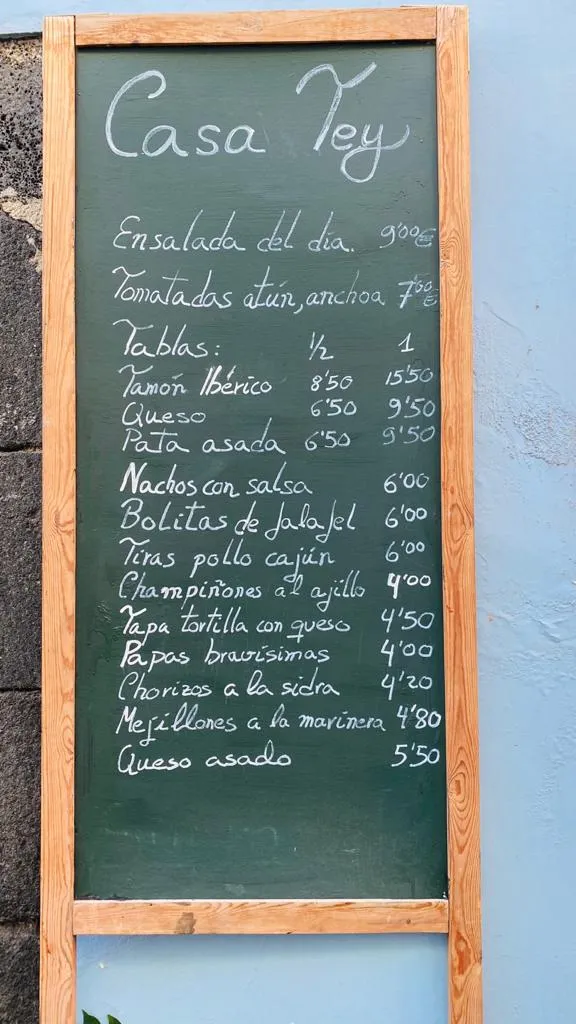 Casa Tey
Ensalada del día. 9'00€
Tomatadas atún, anchoa 7'00€
Tablas: 1/2 1
Jamón Ibérico 8'50 15'50
Queso 6'50 9'50
Pata asada 6'50 9'50
Nachos con salsa 6'00
Bolitas de falafel 6'00
Tiras pollo cajún 6'00
Champiñones al ajillo 4'00
Tapa tortilla con queso 4'50
Papas bravísimas 4'00
Chorizos a la sidra 4'20
Mejillones a la marinera 4'80
Queso asado 5'50